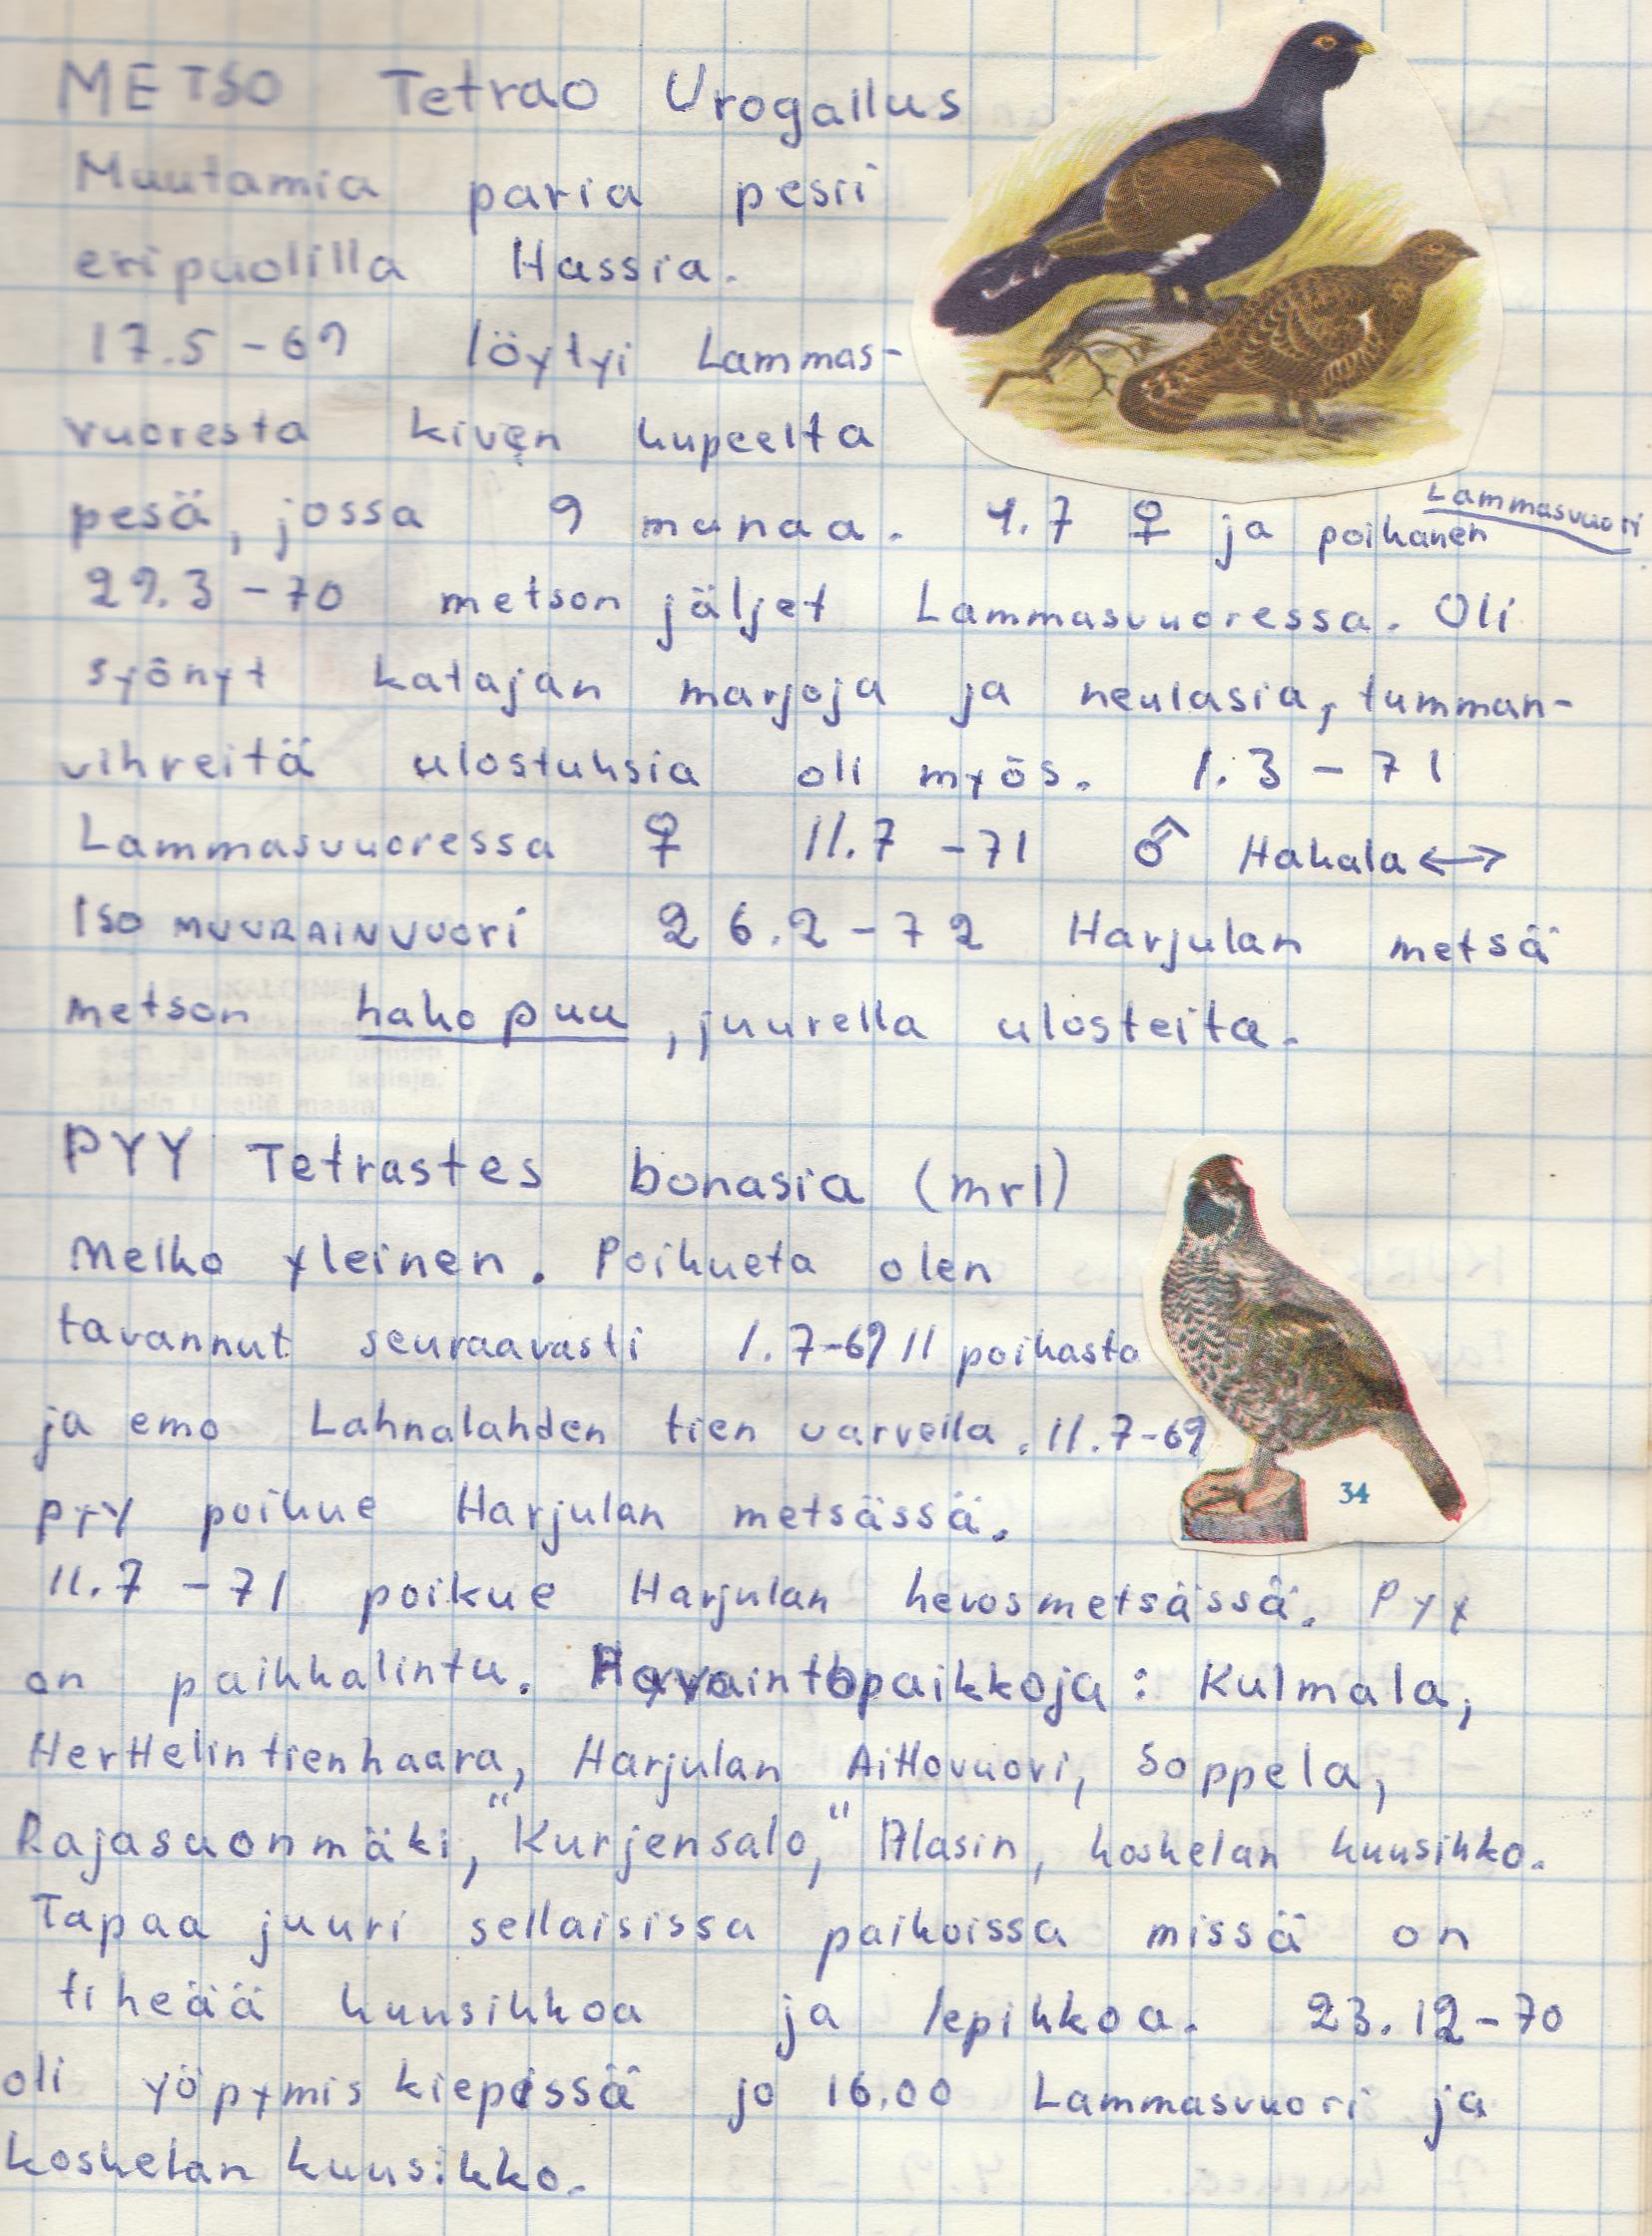 METSO Tetrao Urogallus
Muutamia paria pesii
eripuolilla Hassia.
17.5-69 löytyi Lammas-
vuoresta kiven kupeelta
pesä, jossa 9 munaa. 4.7 ♀ ja poikanen Lammasvuori
29.3-70 metson jäljet Lammasvuoressa. Oli
syönyt katajan marjoja ja neulasia, tumman-
vihreitä ulostuksia oli myös. 1.3-71
Lammasvuoressa ♀ 11.7-71 ♂ Hakala ↔
Iso MUURAINVUORI 26.2-72 Harjulan metsä
metson hako puu, juurella ulosteita.
PYY Tetrastes bonasia (mrl)
Melko yleinen. Poikueta olen
tavannut seuraavasti 1.7-69 11 poikasta
ja emo Lahnalahden tien varvella. 11.7-69
pyy poikue Harjulan metsässä.
11.7-71 poikue Harjulan hevosmetsässä. Pyy
on paikkalintu. Havaintopaikkoja: Kulmala,
Herttelintienhaara, Harjulan Aittovuori, Soppela,
Rajasuonmäki, "Kurjensalo," Alasin, koskelan kuusikko.
Tapaa juuri sellaisissa paikoissa missä on
tiheää kuusikkoa ja lepikkoa. 23.12-70
oli yöpymis kiepissä jo 16.00 Lammasvuori ja
koskelan kuusikko.
34